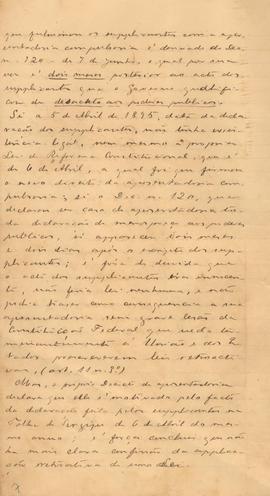 que fulminou os supplicantes com a apo-
sentadoria compulsoria é donde do De-
n. 120 de 7 de junho, o qual por sua
vez é dois meses posterior ao acto dos
supplicantes que o Governo qualificou
de desacato aos poderes publicos.
Si a 5 de Abril de 1895, data da decla-
ração dos supplicantes, não tinha exis-
tencia legal, nem mesmo a propria
Lei de Reforma Constitucional, que é
de 6 de Abril, a qual foi que firmou
o novo direito da aposentadoria com-
pulsoria; si o Dec. n. 120, que
declarou em caso de aposentadoria to-
da declaração de menospreço aos poderes
publicos só appareceu dois mezes
e dois dias após o acto dos sup-
plicantes; é fóra de duvida que
o acto dos supplicantes era innocen-
te, não feria lei nenhuma, e não
podia trazer como consequencia a sua
aposentadoria sem grave lesão da
Constituição Federal que veda ter-
minantemente á União e aos Es-
tados promulgarem leis retroacti-
vas, (art. 11 n. 3º)
Mas, o proprio Decreto de aposentadoria
declara que elle é motivado pelo facto
da declaração feita pelos supplicantes na
Folha de Sergipe de 6 de Abril do mes-
mo anno; é força concluir que não
ha mais clara confissão da applica-
ção retroactiva de uma lei.